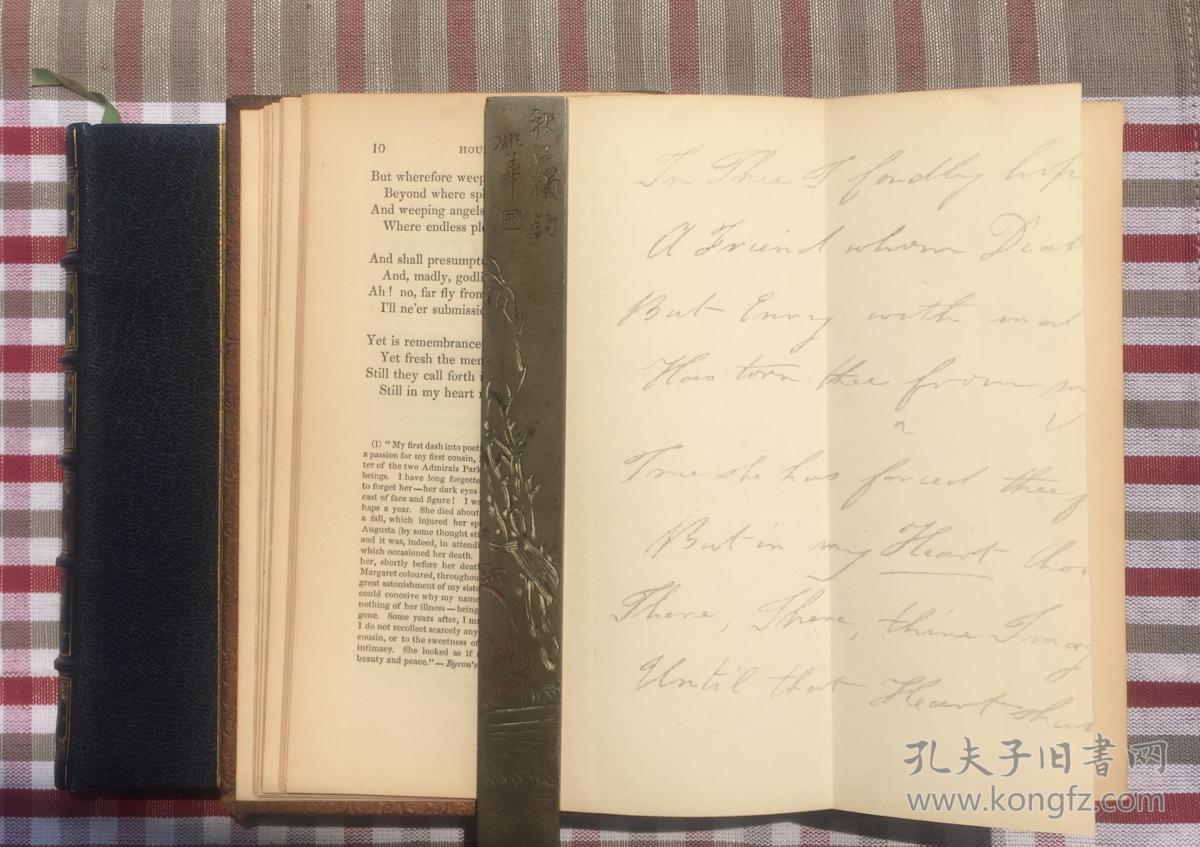 10 HOU
But wherefore weep
Beyond where sp
And weeping angels
Where endless ple
And shall presumpt
And, madly, godli
Ah! no, far fly from
I'll ne'er submissio
Yet is remembrance
Yet fresh the mem
Still they call forth
Still in my heart
(1) "My first dash into poet
a passion for my first cousin,
ter of the two Admirals Park
beings. I have long forgotte
to forget her—her dark eyes
cast of face and figure! I wa
haps a year. She died about
a fall, which injured her sp
Augusta (by some thought sti
and it was, indeed, in attendi
which occasioned her death.
her, shortly before her deat
Margaret coloured, throughou
great astonishment of my siste
could conceive why my name
nothing of her illness—being
gone. Some years after, I ma
I do not recollect scarcely any
cousin, or to the sweetness of
intimacy. She looked as if
beauty and peace."—Byron's
秋江獨釣
姚華
In Thee I fondly hop
A Friend whom Deat
But Envy with mal
Has torn thee from m
True she has forced thee f
But in my Heart tho
There, There, thine Imag
Until that Heart shal
孔夫子旧书网
www.kongfz.com